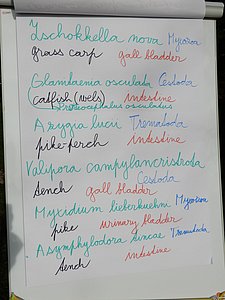 Zschokkella nova Myxozoa
grass carp gall bladder
Glanitaenia osculata Cestoda
catfish (wels) intestine
(Proteocephalus osculatus)
Azygia lucii Trematoda
pike-perch intestine
Valipora campylancristrota
Cestoda
tench gall bladder
Myxidium lieberkuehni Myxozoa
pike urinary bladder
Asymphylodora tincae Trematoda
tench intestine